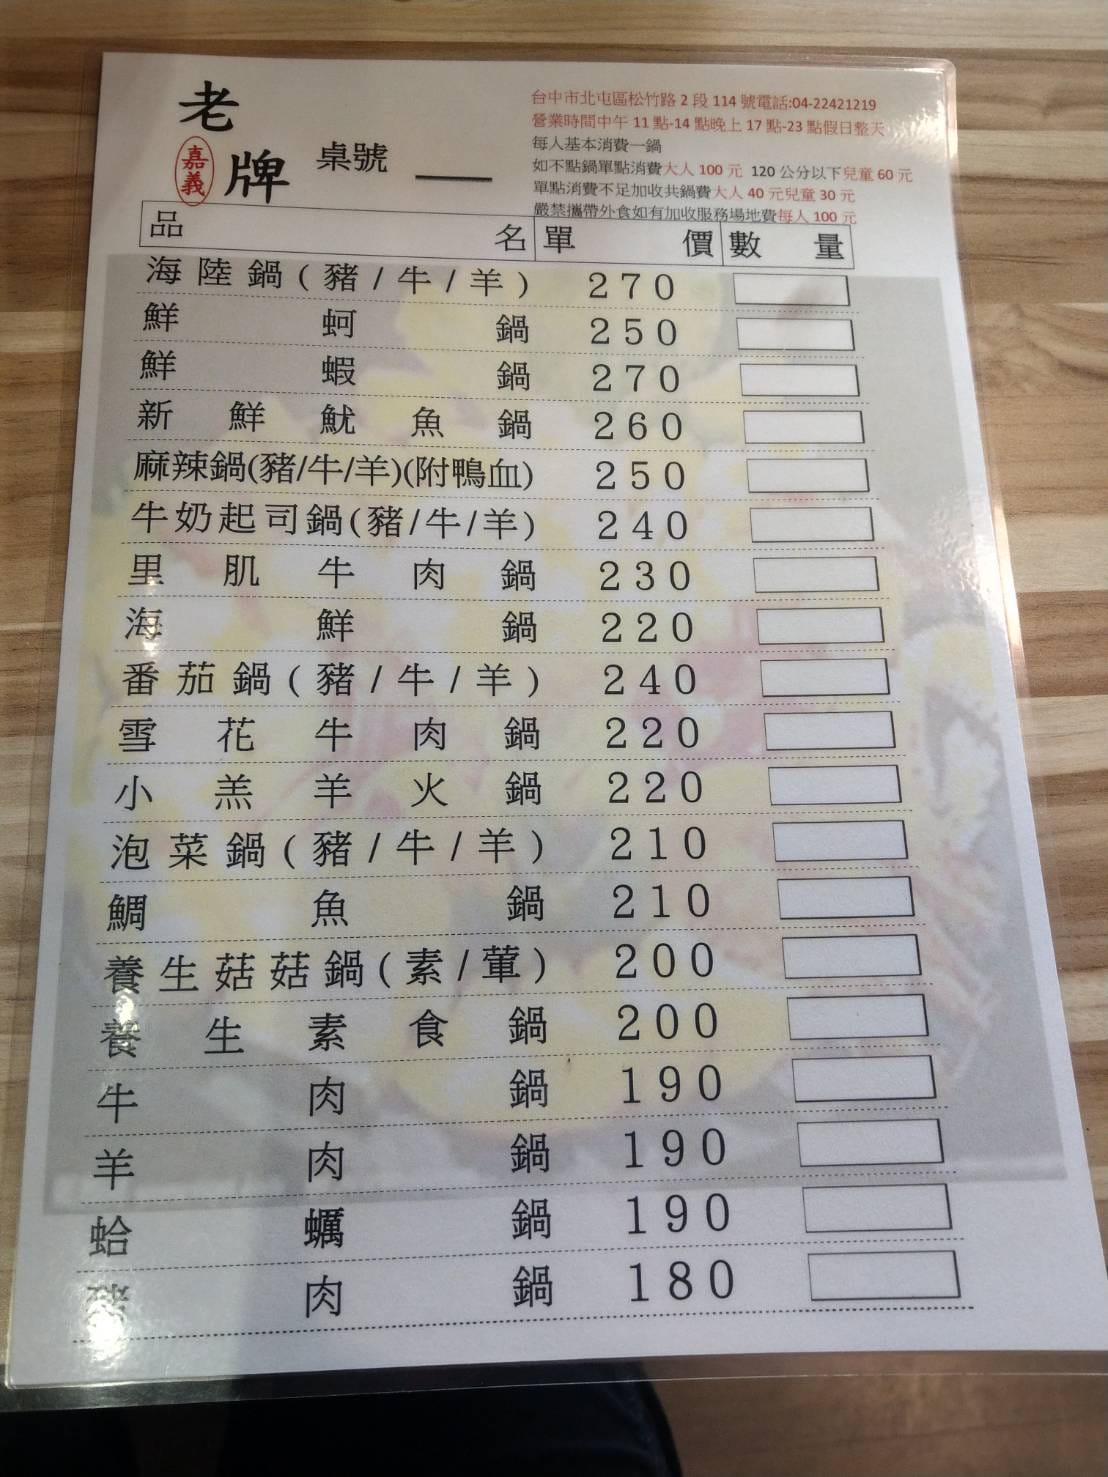 老牌
嘉義
桌號
台中市北屯區松竹路 2 段 114 號電話:04-22421219
營業時間中午 11 點-14 點晚上 17 點-23 點假日整天
每人基本消費一鍋
如不點鍋單點消費大人 100 元 120 公分以下兒童 60 元
單點消費不足加收共鍋費大人 40 元兒童 30 元
嚴禁攜帶外食如有加收服務場地費每人 100 元
品名 單價 數量
海陸鍋(豬/牛/羊) 270
鮮蚵鍋 250
鮮蝦鍋 270
新鮮魷魚鍋 260
麻辣鍋(豬/牛/羊)(附鴨血) 250
牛奶起司鍋(豬/牛/羊) 240
里肌牛肉鍋 230
海鮮鍋 220
番茄鍋(豬/牛/羊) 240
雪花牛肉鍋 220
小羔羊火鍋 220
泡菜鍋(豬/牛/羊) 210
鯛魚鍋 210
養生菇菇鍋(素/葷) 200
養生素食鍋 200
牛肉鍋 190
羊肉鍋 190
蛤蠣鍋 190
豬肉鍋 180